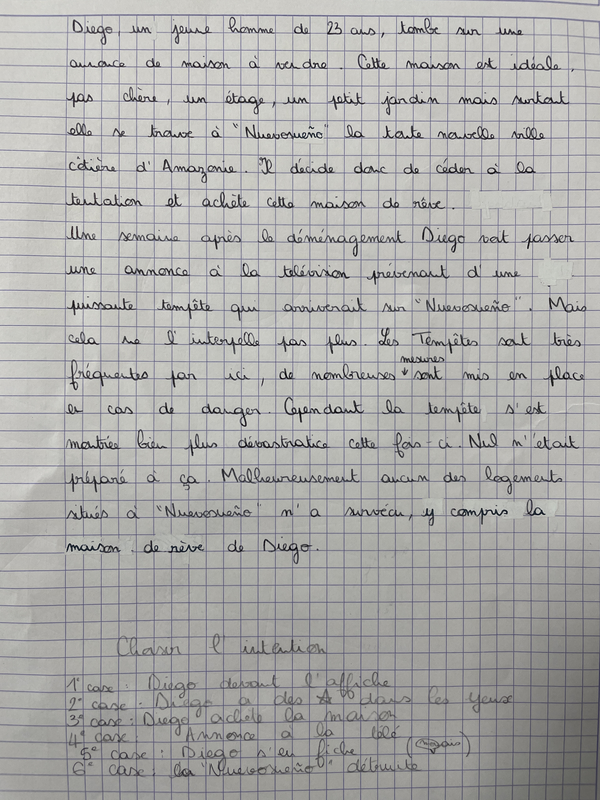 Diego, un jeune homme de 23 ans, tombe sur une
annonce de maison à vendre. Cette maison est idéale,
pas chère, un étage, un petit jardin mais surtout
elle se trouve à "Nuevosueño" la toute nouvelle ville
côtière d'Amazonie. Il décide donc de céder à la
tentation et achète cette maison de rêve.
Une semaine après le déménagement Diego voit passer
une annonce à la télévision prévenant d'une
puissante tempête qui arriverait sur "Nuevosueño". Mais
cela ne l'interpelle pas plus. Les Tempêtes sont très
mesures
fréquentes par ici, de nombreuses sont mis en place
en cas de danger. Cependant la tempête s'est
montrée bien plus dévastratice cette fois-ci. Nul n'était
préparé à ça. Malheureusement aucun des logements
situés à "Nuevosueño" n'a survécu, y compris la
maison de rêve de Diego.
Choisir l'intention
1e case : Diego devant l'affiche
2e case : Diego a des dans les yeux
3e case : Diego achète la maison
4e case : Annonce à la télé
5e case : Diego s'en fiche
6e case : la "Nuevosueño" détruite